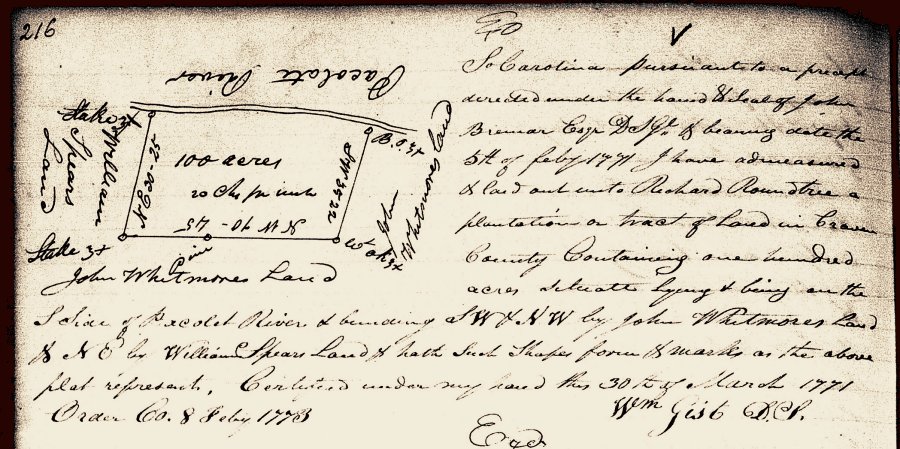 216
Pacolate River
Stake 3x
William
Spears
Land
B.O. 3x
John
Whitmores Land
100 acres
20 Chs pr inch
N E 20 - 52
S W 35 22
N W 70 - 45
Stake 3x
Pine
John Whitmores Land
So Carolina pursuant to a precept
directed under the hand & Seal of John
Bremar Esqr D S Gl. & bearing date the
5th of feby 1771 I have admeasured
& laid out unto Richard Roundtree a
plantation or tract of Land in Craven
County Containing one hundred
acres situate lying & being on the
S Side of Pacolet River & bunding S W & N W by John Whitmores Land
& N E by William Spears Land & hath Such Shapes form & marks as the above
plat represents, Certified under my hand this 30th of March 1771
Order Co. 8 Feby 1773
Wm Gist D.S.
Exd